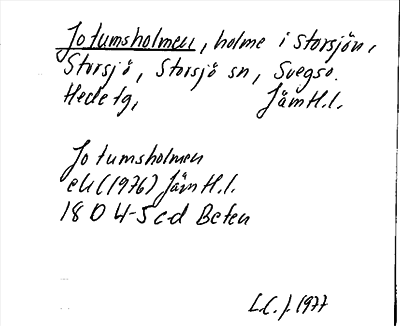 Jotumsholmen, holme i Storsjön,
Storsjö, Storsjö sn, Svegs o.
Hede tg, JämtH.l.
Jotumsholmen
ek (1976) JämtH.l.
18 D 4-5 c-d Beten
L.C.J. 1977